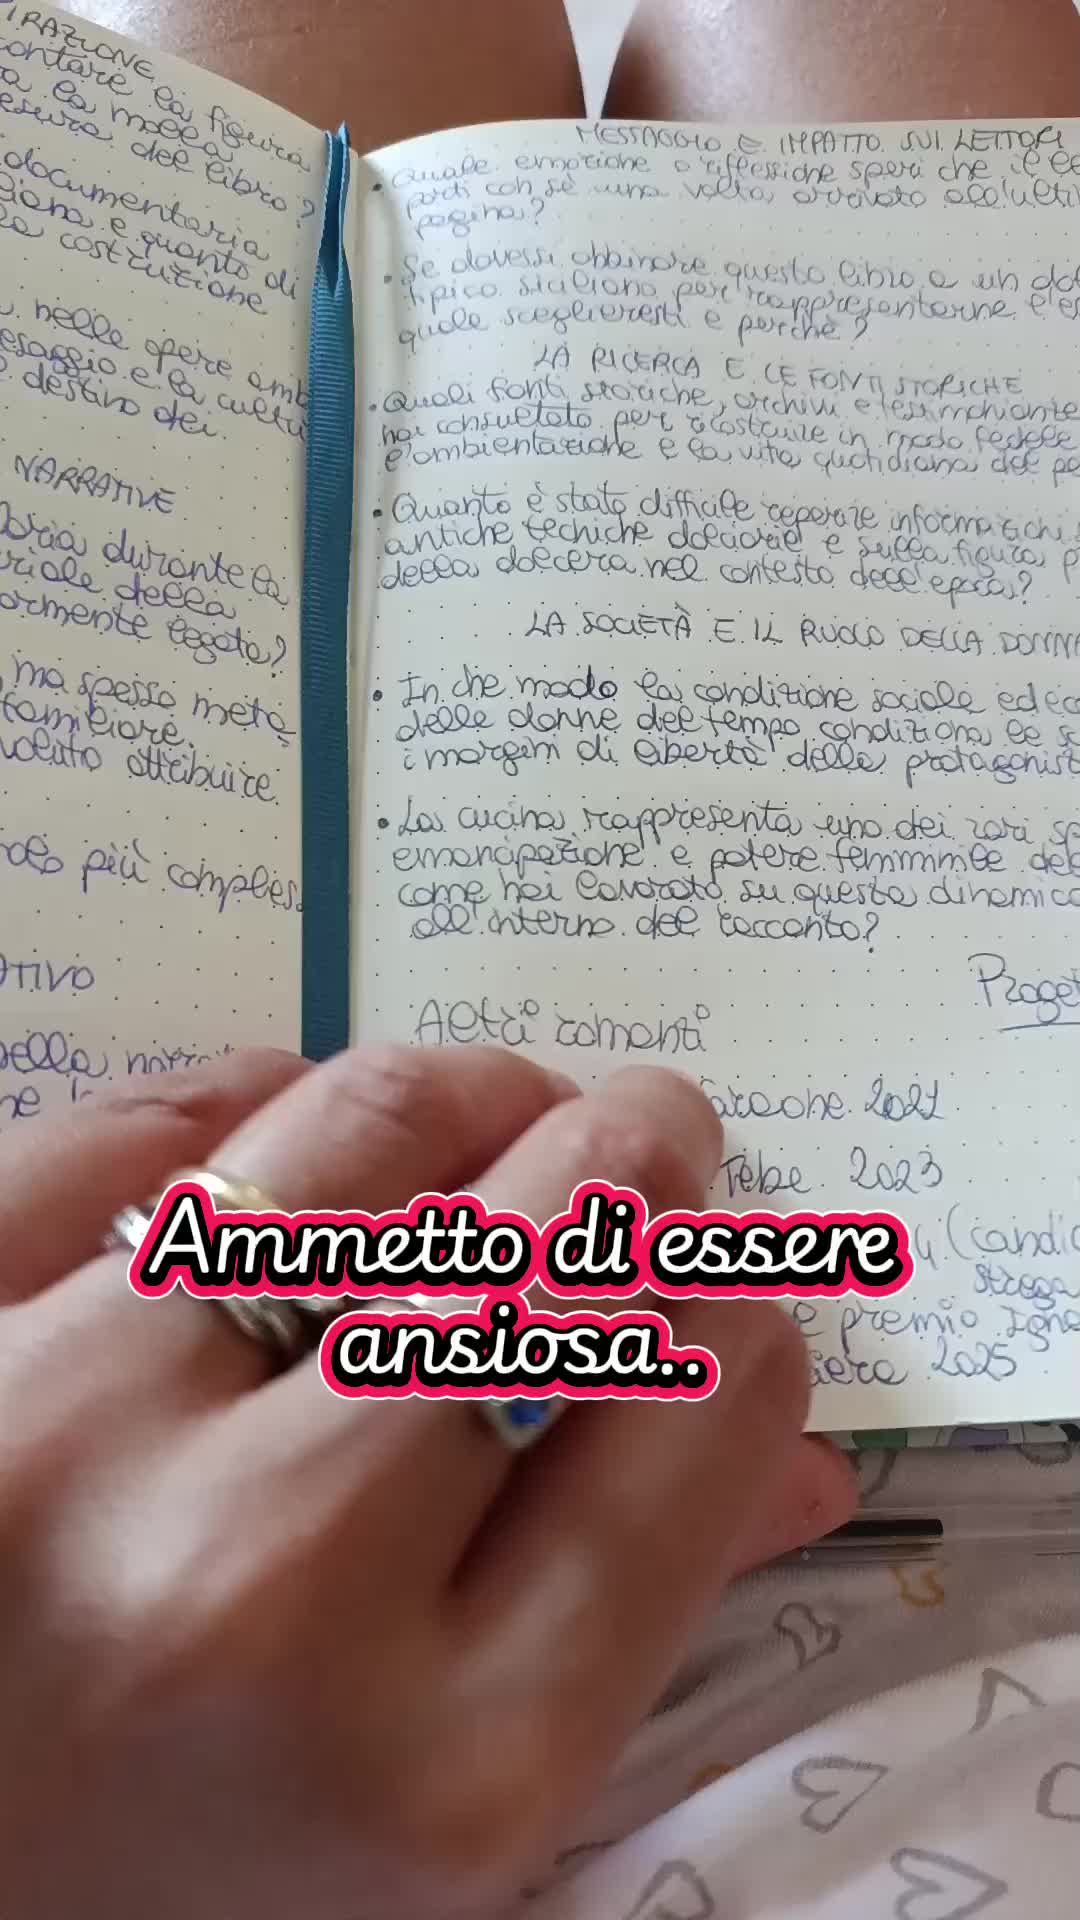 IRAZIONE
contare la figura
la molla
del libro?
documentaria
e quanto di
costruzione
nelle opere amb
esaggio e la cultu
destino dei.
NARRATIVE
durante la
della
ormente legata?
ma spesso meta
familiare.
voluto attribuire.
più compless
ATIVO
della
MESSAGGIO E IMPATTO SUI LETTORI
• Quale emozione o riflessione speri che il le
porti con sé una volta arrivato all'ulti
pagina?
• Se dovessi abbinare questo libro a un do
tipico siciliano per rappresentarne l'es
quale sceglieresti e perché?
LA RICERCA E LE FONTI STORICHE
• Quali fonti storiche, archivi e testimonianze
hai consultato per ricostruire in modo fedele
l'ambientazione e la vita quotidiana del pe
• Quanto è stato difficile reperire informazioni s
antiche tecniche dolciarie e sulla figura p
della dolcera nel contesto dell'epoca?
LA SOCIETÀ E IL RUOLO DELLA DONNA
• In che modo la condizione sociale ed ec
delle donne del tempo condiziona le s
i margini di libertà della protagonist
• La cucina rappresenta uno dei rari sp
emancipazione e potere femminile del
come hai lavorato su questa dinamica
all'interno del racconto?
Proget
Altri romanzi
2021
Tebe 2023
(candid
Strega
e premio
2025
Ammetto di essere
ansiosa..